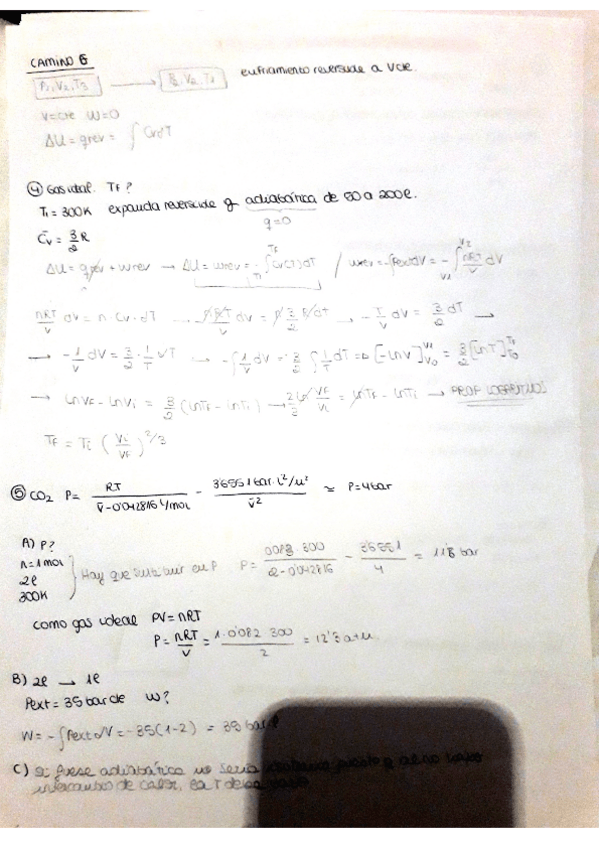 CAMINO G
P1,V2,T3 → P2,V2,T1 enfriamiento reversible a Vcte.
V=cte W=0
ΔU = qrev = ∫ CvdT
④ Gas ideal. TF?
T1 = 300K expanda reversible y adiabática de 50 a 200l.
q=0
C̄v = 3/2 R
ΔU = qrev + wrev → ΔU = wrev = ∫ Cv(T) dT / wrev = -∫Pext dV = -∫ nRT/V dV
nRT/V dV = n · Cv · dT → - T/V dV = 3/2 dT →
→ -1/V dV = 3/2 · 1/T dT → -∫ 1/V dV = 3/2 ∫ 1/T dT => [-lnV] = 3/2 [lnT]
→ lnVF - lnVi = 3/2 (lnTF - lnTi) → 2/3 ln VF/Vi = lnTF - lnTi → PROP LOGARITMOS
TF = Ti (Vi/VF)^2/3
⑤ CO2 P = RT / V̄-0'042816 l/mol - 3'6551 bar·l²/m² / V̄² P=4bar
A) P?
n=1mol
2l
300K
Hay que sustituir en P P = 0'083·300 / 2-0'042816 - 3'6551 / 4 = 11'8 bar
como gas ideal PV = nRT
P = nRT/V = 1·0'082·300 / 2 = 12'3 atm.
B) 2l → 1l
Pext = 35 bar cte W?
W = -∫Pext dV = -35(1-2) = 35 bar l
C) Si fuese adiabática no sería
intercambio de calor, la T